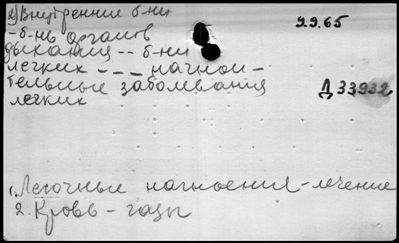 х) Внутренние б-ни
9.9.65
- б-нь органов
дыхания -- б-ни
легких - - - нагнои-
тельные заболевания
Д 33932
легких
1. Легочные нагноения - лечение
2. Кровь - газы